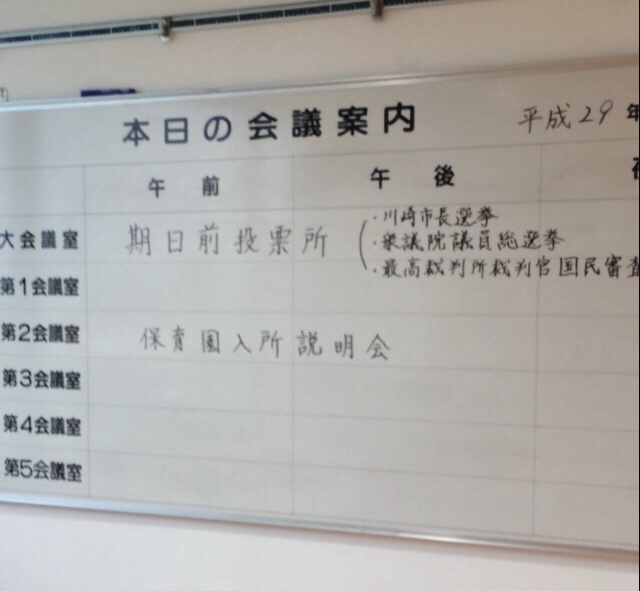 本日の会議案内
平成29年
午前 午後
大会議室 期日前投票所
・川崎市長選挙
・衆議院議員総選挙
・最高裁判所裁判官国民審査
第1会議室
第2会議室 保育園入所説明会
第3会議室
第4会議室
第5会議室